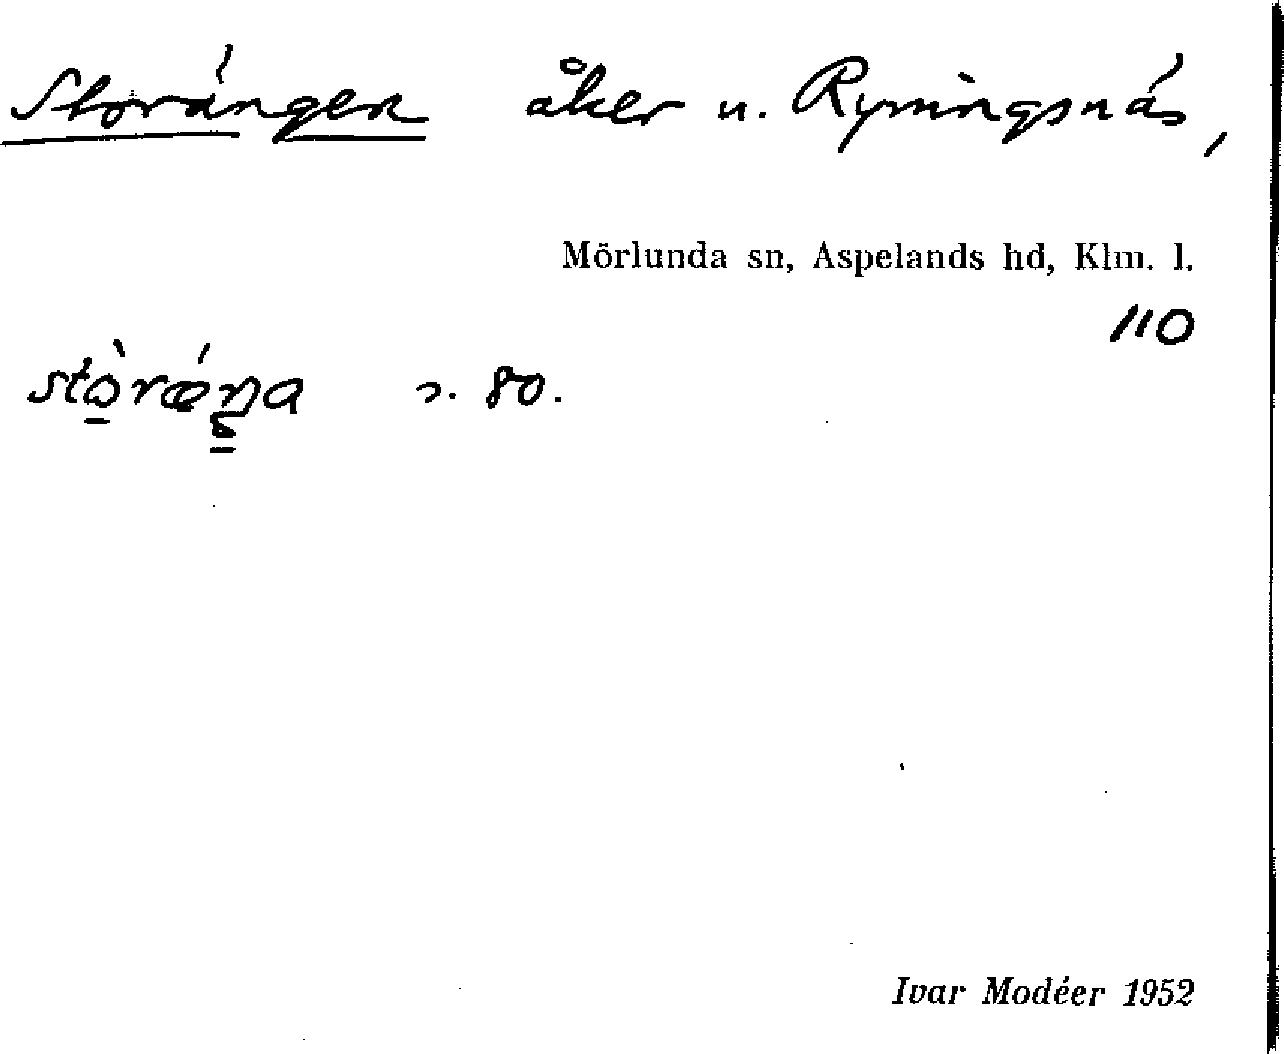 Storängen åker u. Ryningsnäs,
Mörlunda sn, Aspelands hd, Klm. l.
110
stòrǽŋa s. 80.
Ivar Modéer 1952